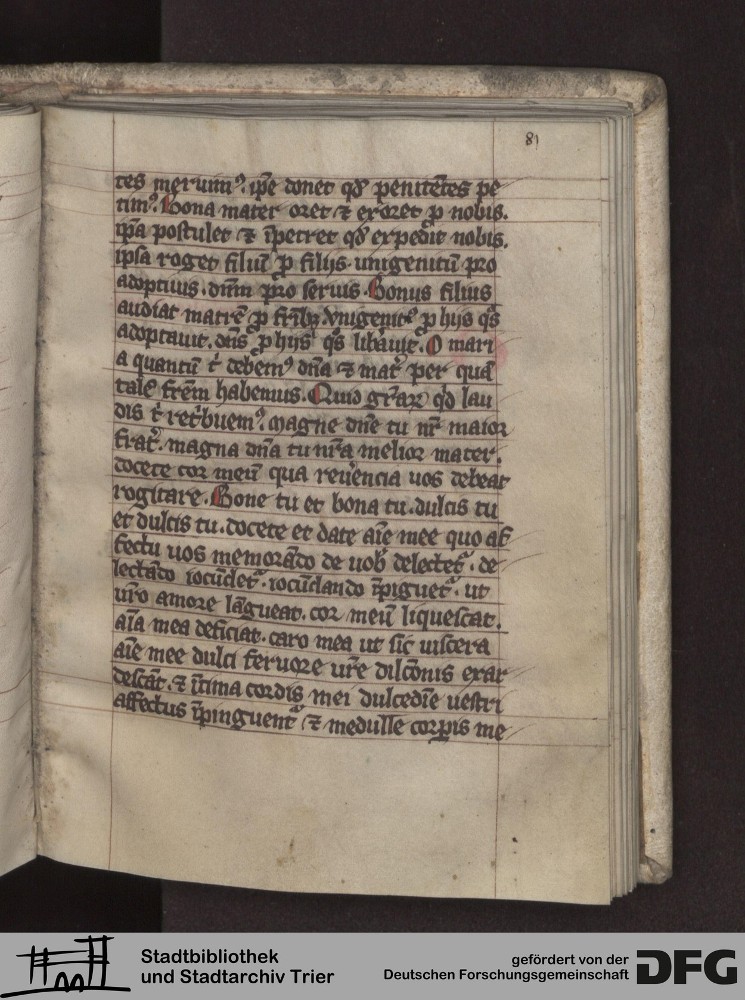 81
tes meruimꝰ. ip̅e donet qd̕ penitētes pe
timꝰ. Bona mater oret ⁊ exoret p̱ nobis.
ip̅a postulet ⁊ īpetret qd̕ expedit nobis.
ipsa roget filiū p̱ filijs. unigenitū pro
adoptiuis. dn̅m pro seruis. Bonus filius
audiat matrē p̱ fr̅ibꝫ. Vnigenitꝰ p̱ hijs q̊s
adoptauit. dn̅s p̱ hijs q̊s liƀauit. O mari
a quantū t̕ debemꝰ dn̅a ⁊ mat̕ per quā
talē fr̅em habemus. Quid gr̅aꝝ qd̕ lau
dis t̕ ret̕buemꝰ. Magne dn̅e tu nr̅ maior
frat̕. magna dn̅a tu nr̅a melior mater.
docete cor meū qua reu̕encia uos debeat
cogitare. Bone tu et bona tu. dulcis tu
et dulcis tu. docete et date aīe mee quo af
fectu uos memorādo de uob̕ delectet᷑. de
lectādo iocūdet᷑. iocūdando īpīguet᷑. ut
ur̅o amore lāgueat. cor meū liquescat.
aīa mea deficiat. caro mea ut sic uiscera
aīe mee dulci feruore ur̅e dilc̅onis exar
descāt. ⁊ ītima cordis mei dulcedīe uestri
affectus īpinguent᷑ ⁊ medulle corꝑis me
Stadtbibliothek
und Stadtarchiv Trier
gefördert von der
Deutschen Forschungsgemeinschaft
DFG